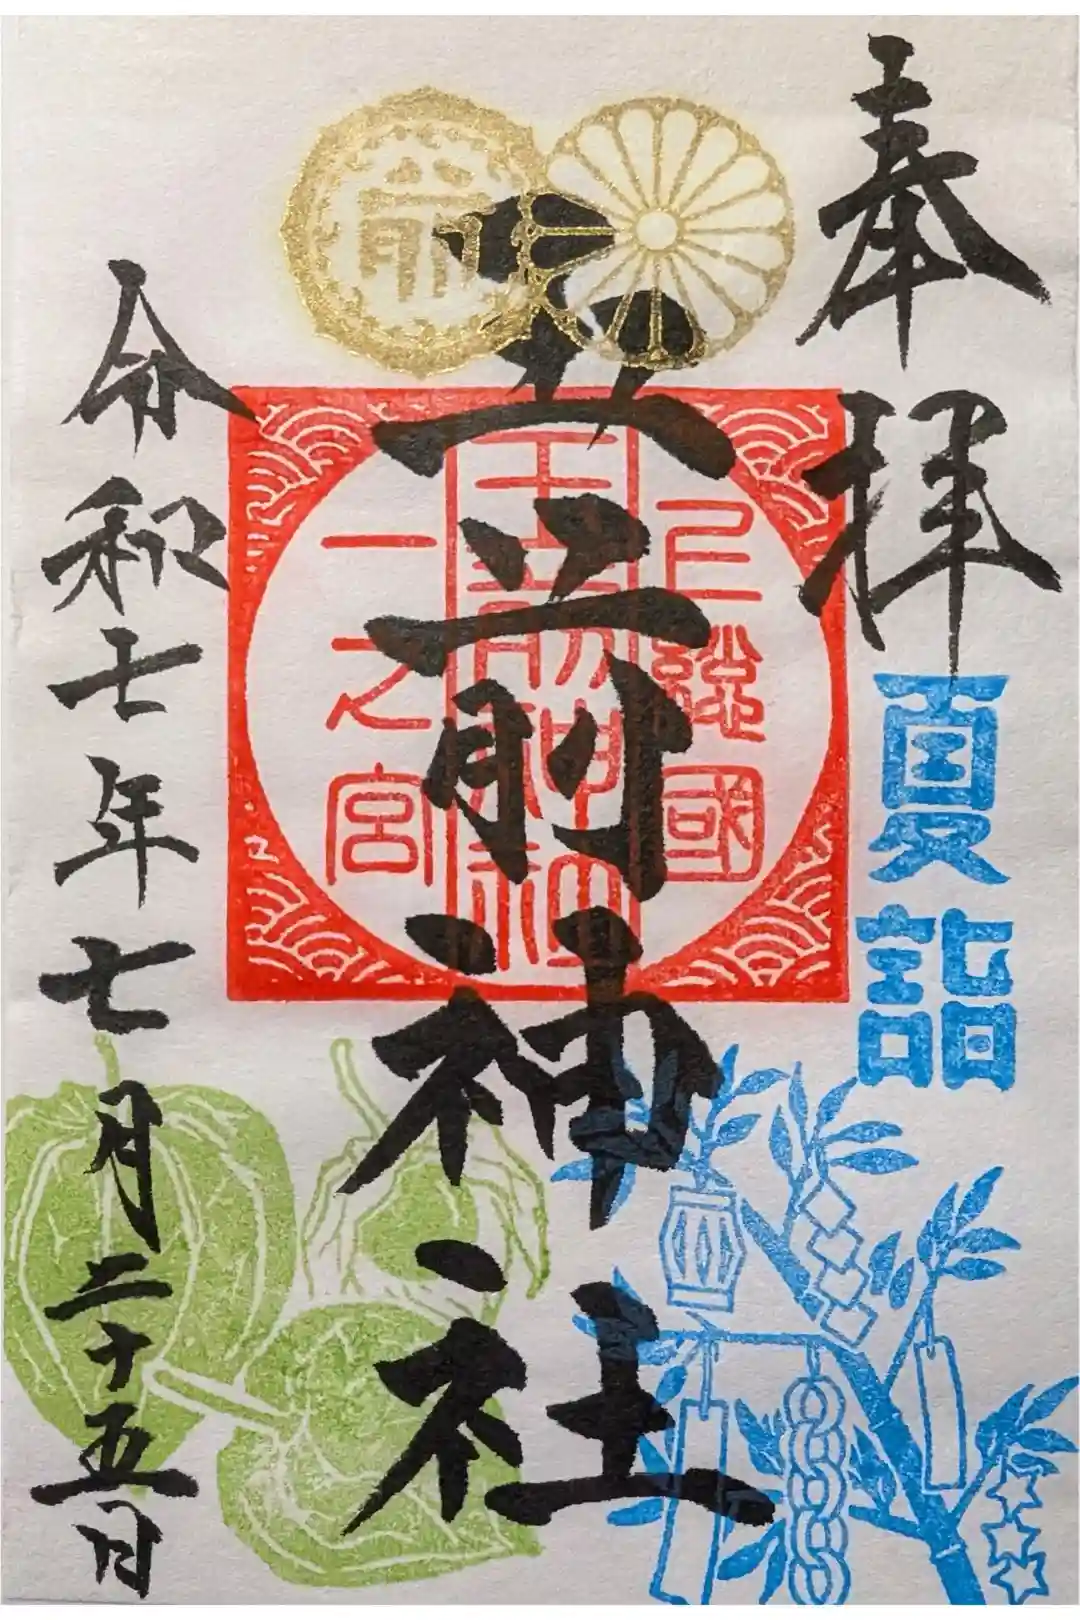 奉拝
夏詣
玉前神社
上総國
玉前神社
一之宮
令和七年七月二十五日